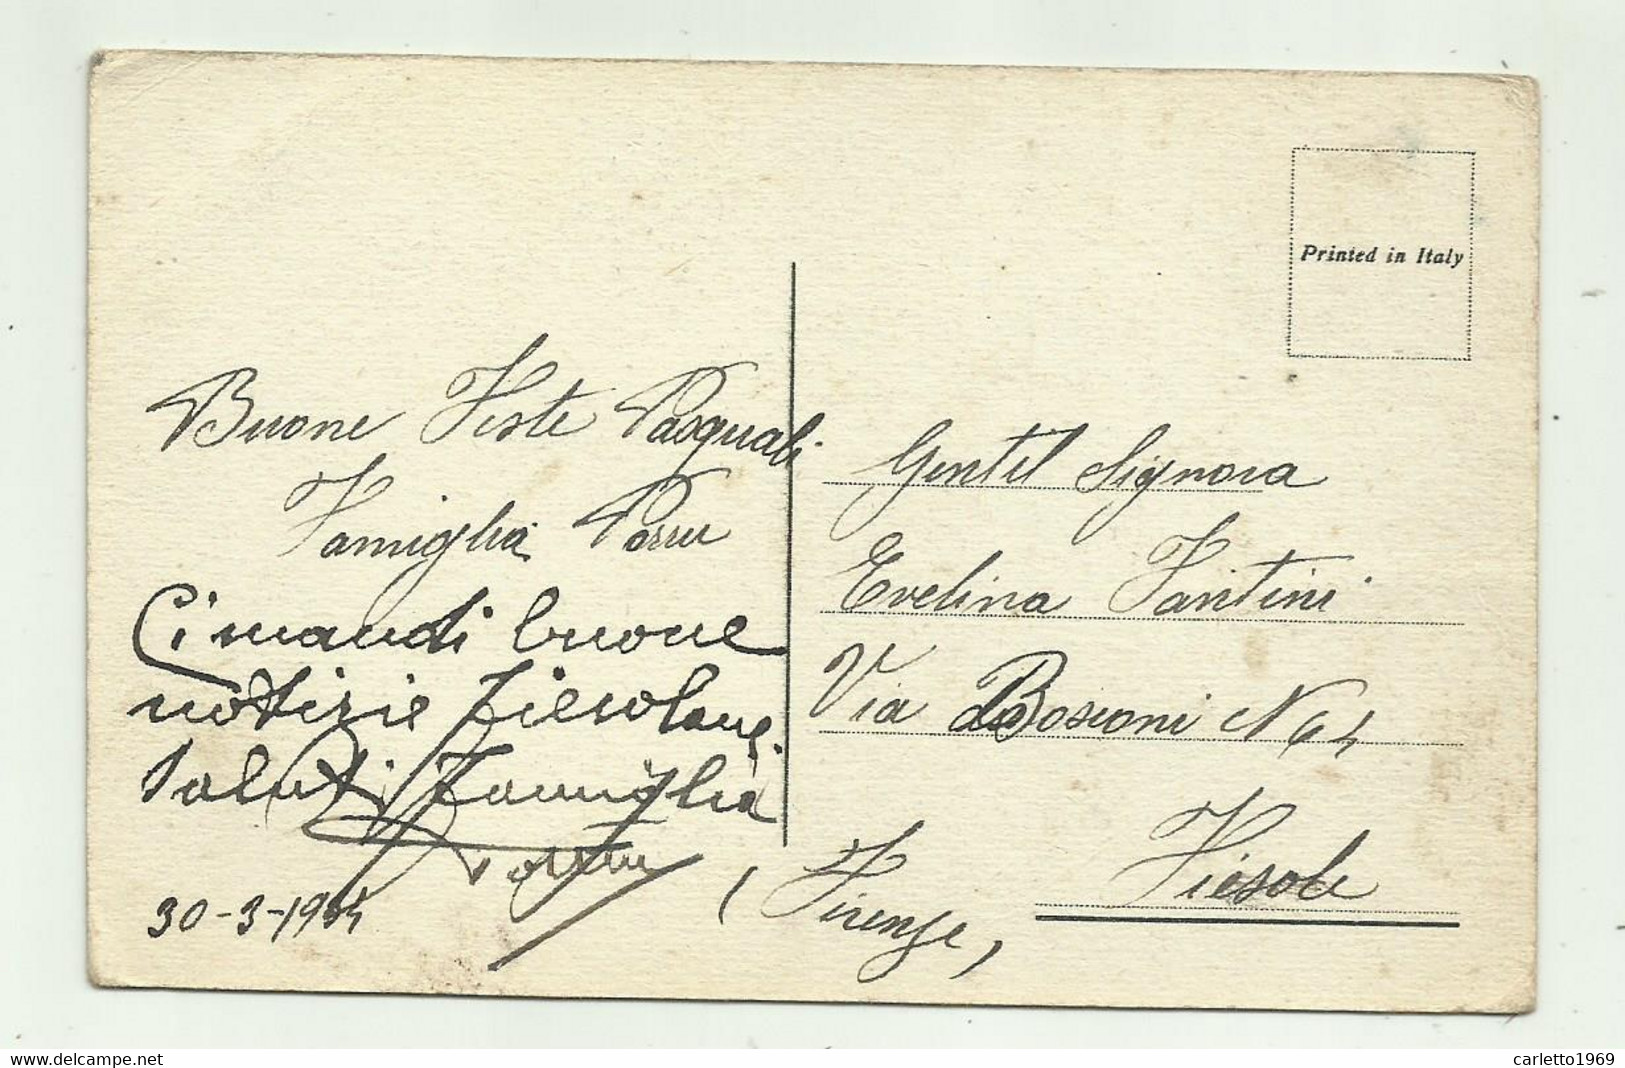 Printed in Italy
Buone Feste Pasquali
Famiglia
Ci mandi buone
notizie Fiesolane
saluti Famiglia
30-3-1964
Gentil Signora
Evelina Fantini
Via Bosconi N 64
Fiesole
(Firenze)
carletto1969